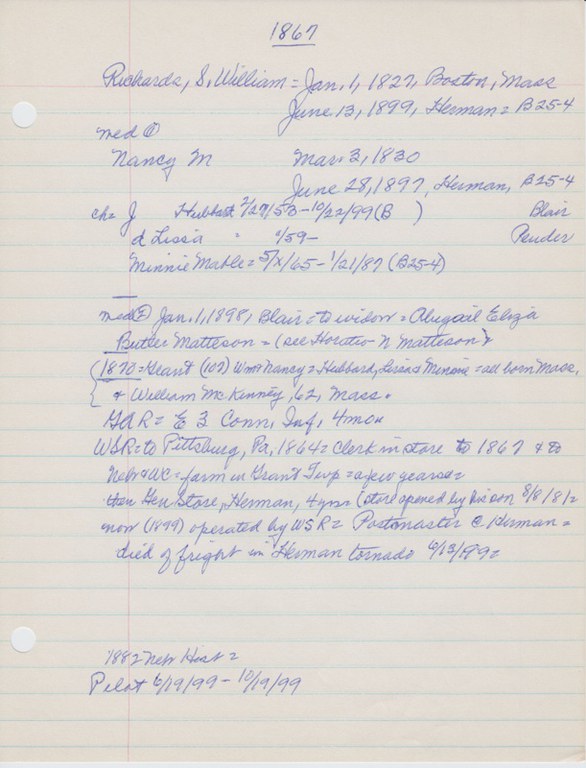 1867
Richards, S. William = Jan. 1, 1827, Boston, Mass
June 13, 1899, Herman = B25-4
med ①
Nancy M Mar. 3, 1830
June 28, 1897, Herman, B25-4
ch = J Hubbard 2/27/53 - 10/22/99 (B ) Blair
d Lissia = /59 - Pender
Minnie Mable = 5/X/65 - 1/21/87 (B25-4)
med ② Jan. 1, 1898, Blair = to widow = Abigail Eliza
Butler Matteson = (see Horatio N Matteson)
(1870 = Grant (107) Wm & Nancy = Hubbard, Lissia & Minnie = all born Mass,
& William McKinney, 62, Mass.
GAR = E 3 Conn, Inf, 4 mos
WSR = to Pittsburg, Pa, 1864 = Clerk in store to 1867 & to
Nebr & WC = farm in Grant Twp = a few years =
then Gen Store, Herman, 4 yrs = (store opened by his son 8/8/81 =
now (1899) operated by WSR = Postmaster @ Herman =
died of fright in Herman tornado 6/13/99 =
1882 Nebr Hist =
Pilot 6/19/99 - 10/19/99